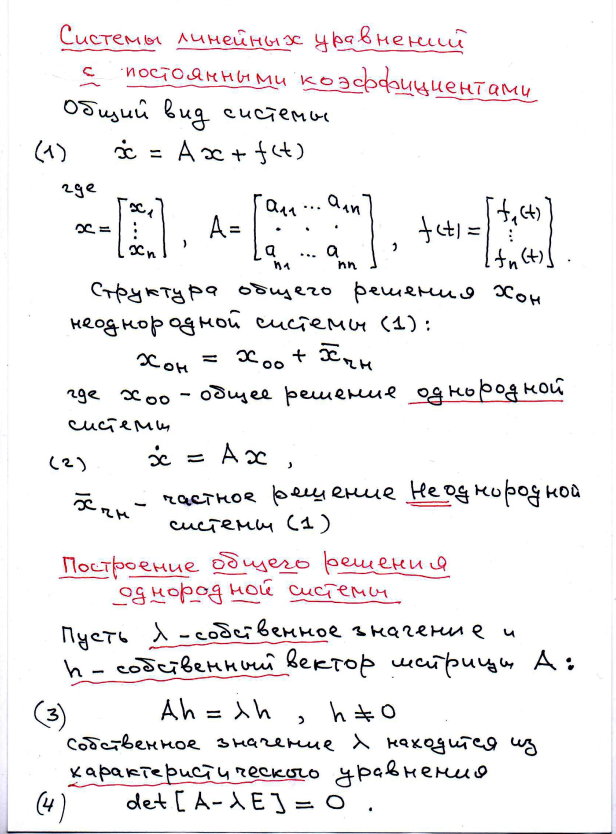 Системы линейных уравнений
с постоянными коэффициентами
Общий вид системы
(1) ẋ = Ax + f(t)
где
x = [x₁ ⋮ xₙ], A = [a₁₁ ... a₁ₙ · · · aₙ₁ ... aₙₙ], f(t) = [f₁(t) ⋮ fₙ(t)].
Структура общего решения xон
неоднородной системы (1):
xон = xоо + x̄чн
где xоо – общее решение однородной
системы
(2) ẋ = Ax,
x̄чн – частное решение Неоднородной
системы (1)
Построение общего решения
однородной системы
Пусть λ – собственное значение и
h – собственный вектор матрицы A:
(3) Ah = λh, h ≠ 0
Собственное значение λ находится из
характеристического уравнения
(4) det[A - λE] = 0.